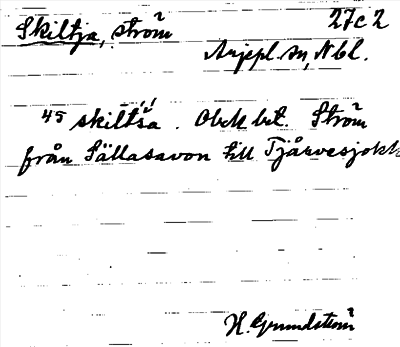 Skiltja, ström 27c2
Arjepl. sn, Nbl.
45 skiltša . Obek bet. Ström
från Sällasavon till Tjårvesjokk
H. Grundström